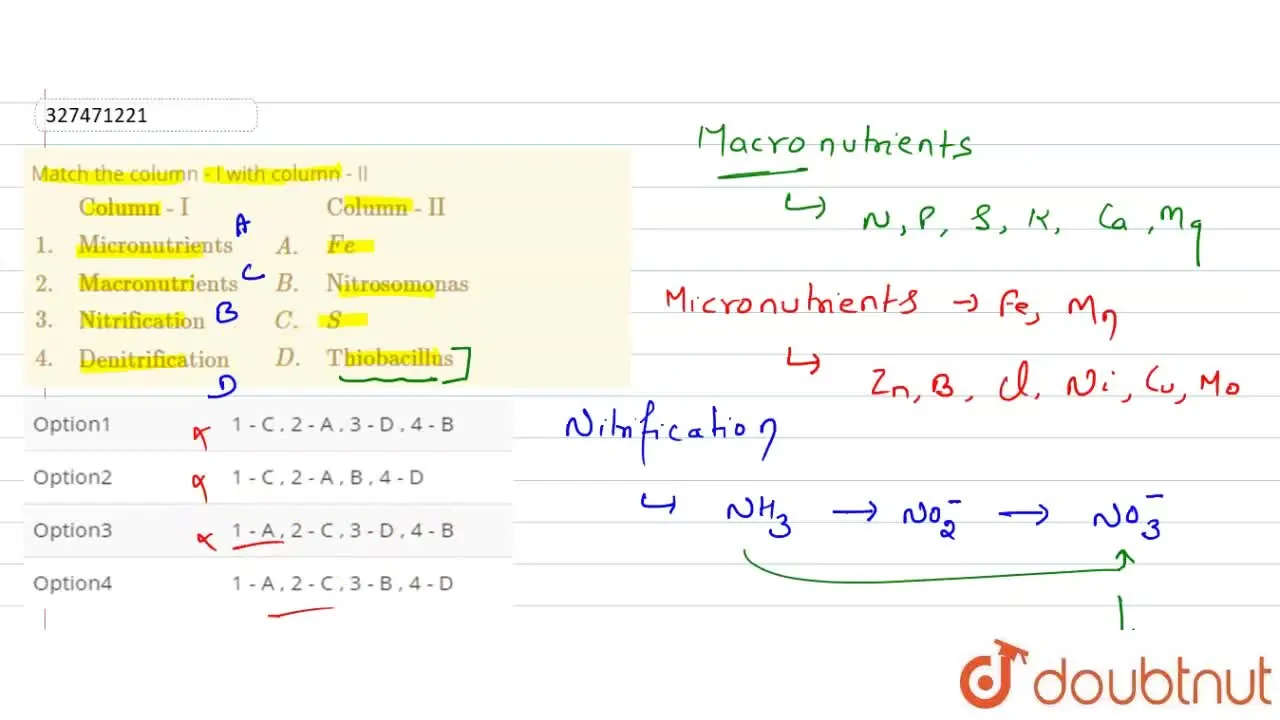 327471221
Match the column - I with column - II
Column - I Column - II
1. Micronutrients A A. Fe
2. Macronutrients C B. Nitrosomonas
3. Nitrification B C. S
4. Denitrification D D. Thiobacillus
Option1 1 - C , 2 - A , 3 - D , 4 - B
Option2 1 - C , 2 - A , B , 4 - D
Option3 1 - A , 2 - C , 3 - D , 4 - B
Option4 1 - A , 2 - C , 3 - B , 4 - D
Macronutrients
↳ N, P, S, K, Ca, Mg
Micronutrients → Fe, Mn
↳ Zn, B, Cl, Ni, Cu, Mo
Nitrification
↳ NH₃ → NO₂⁻ → NO₃⁻
doubtnut